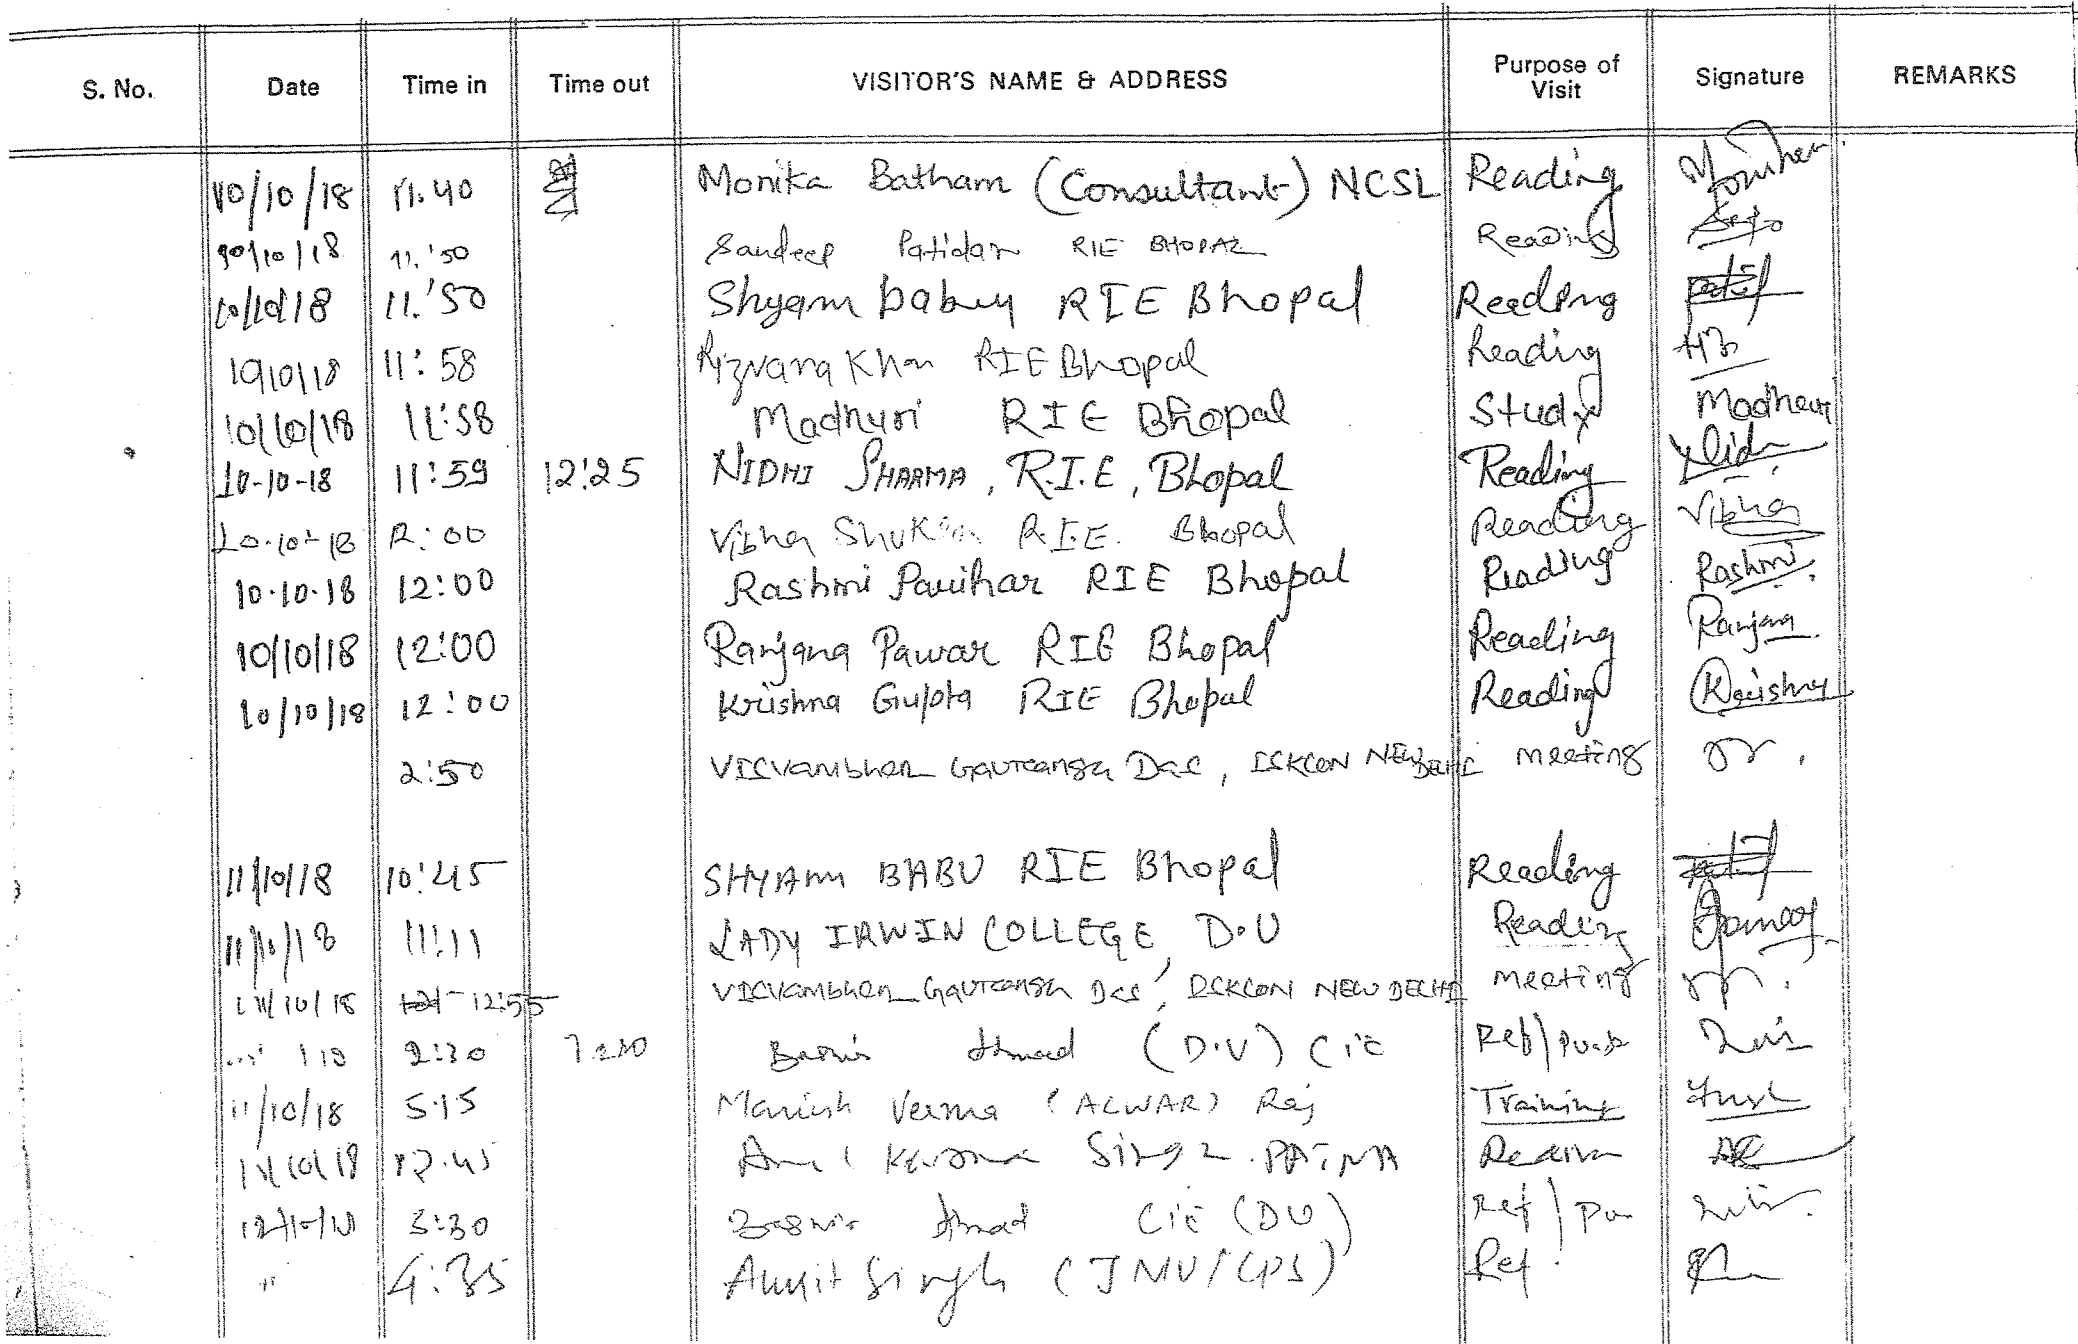 S. No. Date Time in Time out VISITOR'S NAME & ADDRESS Purpose of Visit Signature REMARKS
10/10/18 11:40 Monika Batham (Consultant) NCSL Reading
10/10/18 11:50 Sandeep Patidar RIE BHOPAL Reading
10/10/18 11:50 Shyam babu RIE Bhopal Reading
10/10/18 11:58 Rizvana Khan RIE Bhopal Reading
10/10/18 11:58 Madhuri RIE Bhopal Study Madhuri
10-10-18 11:59 12:25 NIDHI SHARMA, R.I.E, Bhopal Reading Nidhi
10-10-18 12:00 Vibha Shukla R.I.E. Bhopal Reading Vibha
10.10.18 12:00 Rashmi Parihar RIE Bhopal Reading Rashmi
10/10/18 12:00 Ranjana Pawar RIE Bhopal Reading Ranjana
10/10/18 12:00 Krishna Gupta RIE Bhopal Reading Krishna
2:50 VISVAMBHAR GAURANGA Das, ISKCON NEW DELHI meeting
11/10/18 10:45 SHYAM BABU RIE Bhopal Reading
11/10/18 11:11 LADY IRWIN COLLEGE D.U Reading
11/10/18 12:55 VISVAMBHAR GAURANGA Das, ISKCON NEW DELHI meeting
2:30 Ahmad (D.U) CIE Ref
11/10/18 5.15 Manish Verma (ALWAR) Raj Training
Singh PATNA
3:30 Ahmad CIE (DU) Ref
" 4:35 Ankit Singh (JNU/CPS) Ref.